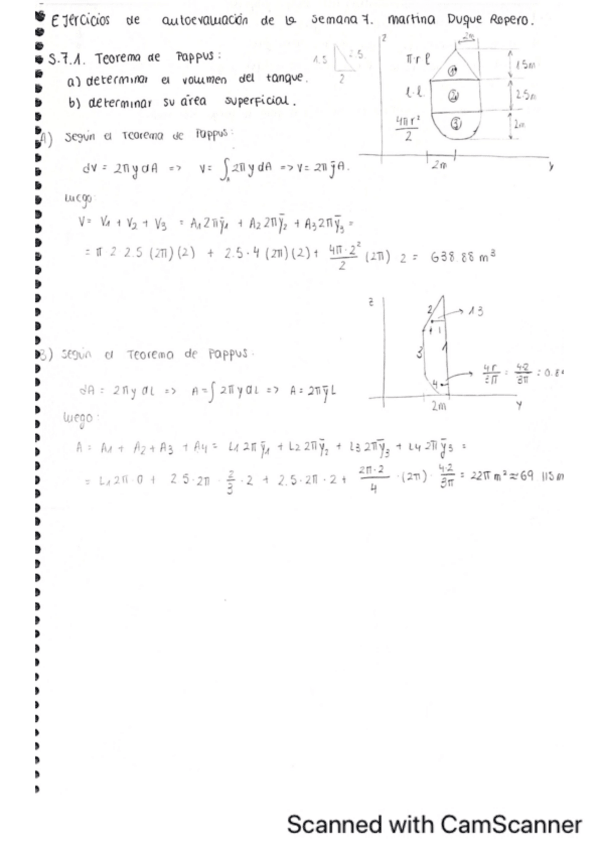 EJercicios de autoevaluación de la semana 7. martina Duque Ropero.
S.7.1. Teorema de Pappus:
1.5 2.5
2
a) determinar el volumen del tanque.
b) determinar su área superficial.
z
2m
π r l
l.l.
4πr²/2
① ② ③
1.5m
2.5m
2m
2m
y
A) según el teorema de Pappus:
dV = 2πy dA => V = ∫ 2πy dA => V = 2πȳA.
luego
V = V1 + V2 + V3 = A1 2πȳ1 + A2 2πȳ2 + A3 2πȳ3 =
= π 2 2.5 (2π)(2) + 2.5·4 (2π)(2) + 4π·2²/2 (2π) 2 = 638.88 m³
z
2
→ 1.3
1
3
4
4r/3π = 4·2/3π
2m
y
B) según el Teorema de Pappus.
dA = 2πy dL => A = ∫ 2πy dL => A = 2πȳL
luego:
A = A1 + A2 + A3 + A4 = L1 2πȳ1 + L2 2πȳ2 + L3 2πȳ3 + L4 2πȳ3 =
= L1 2π·0 + 2.5·2π · 2/3 · 2 + 2.5·2π·2 + 2π·2/4 · (2π) · 4·2/3π = 22π m² ≈ 69.115m
Scanned with CamScanner